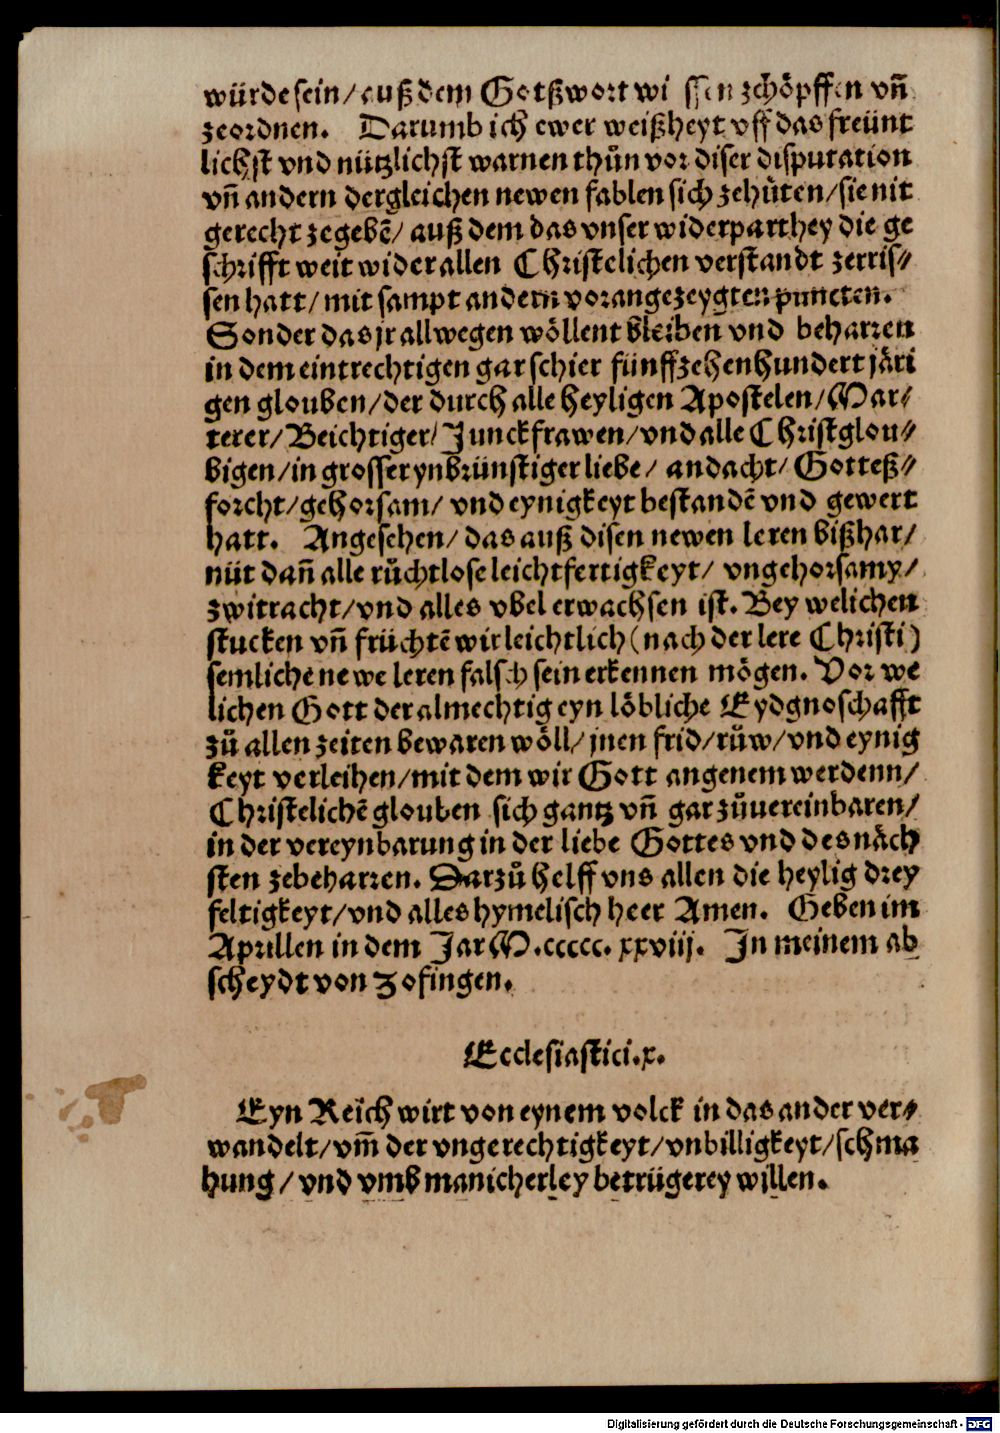 würde sein/ auß dem Gotßwort wi ssen zchöpffen vñ
zeordnen. Darumb ich ewer weißheyt vff das freünt
lichst vnd nützlichst warnen thůn vor diser disputation
vñ andern dergleichen newen fablen sich zehüten/ sie nit
gerecht zegebē/ auß dem das vnser widerparthey die ge
schrifft weit wider allen Christelichen verstandt zerris⸗
sen hatt/ mit sampt andern vorangezeygten puncten.
Sonder das jr allwegen wöllent bleiben vnd beharren
in dem eintrechtigen gar schier fünffzehenhundert järi
gen glouben/ der durch alle heyligen Apostelen/ Mar⸗
terer/ Beichtiger/ Junckfrawen/ vnd alle Christglou⸗
bigen/ in grosser ynbrünstiger liebe/ andacht/ Gotteß⸗
forcht/ gehorsam/ vnd eynigkeyt bestandē vnd gewert
hatt. Angesehen/ das auß disen newen leren bißhar/
nüt dañ alle růchtlose leichtfertigkeyt/ vngehorsamy/
zwitracht/ vnd alles vbel erwachsen ist. Bey welichen
stucken vñ früchtē wir leichtlich (nach der lere Christi)
semliche newe leren falsch sein erkennen mögen. Vor we
lichen Gott der almechtig eyn löbliche Eydgnoschafft
zů allen zeiten bewaren wöll/ jnen frid/ růw/ vnd eynig
keyt verleihen/ mit dem wir Gott angenem werdenn/
Christelichē glouben sich gantz vñ gar zůuereinbaren/
in der vereynbarung in der liebe Gottes vnd des näch
sten zebeharren. Darzů helff vns allen die heylig drey
feltigkeyt/ vnd alles hymelisch heer Amen. Geben im
Aprillen in dem Jar M.ccccc.xxviij. In meinem ab
scheydt von Zofingen.
Ecclesiastici.x.
Eyn Reich wirt von eynem volck in das ander ver⸗
wandelt/ vm̄ der vngerechtigkeyt/ vnbilligkeyt/ schma
hung/ vnd vmb manicherley betrügerey willen.
Digitalisierung gefördert durch die Deutsche Forschungsgemeinschaft - DFG